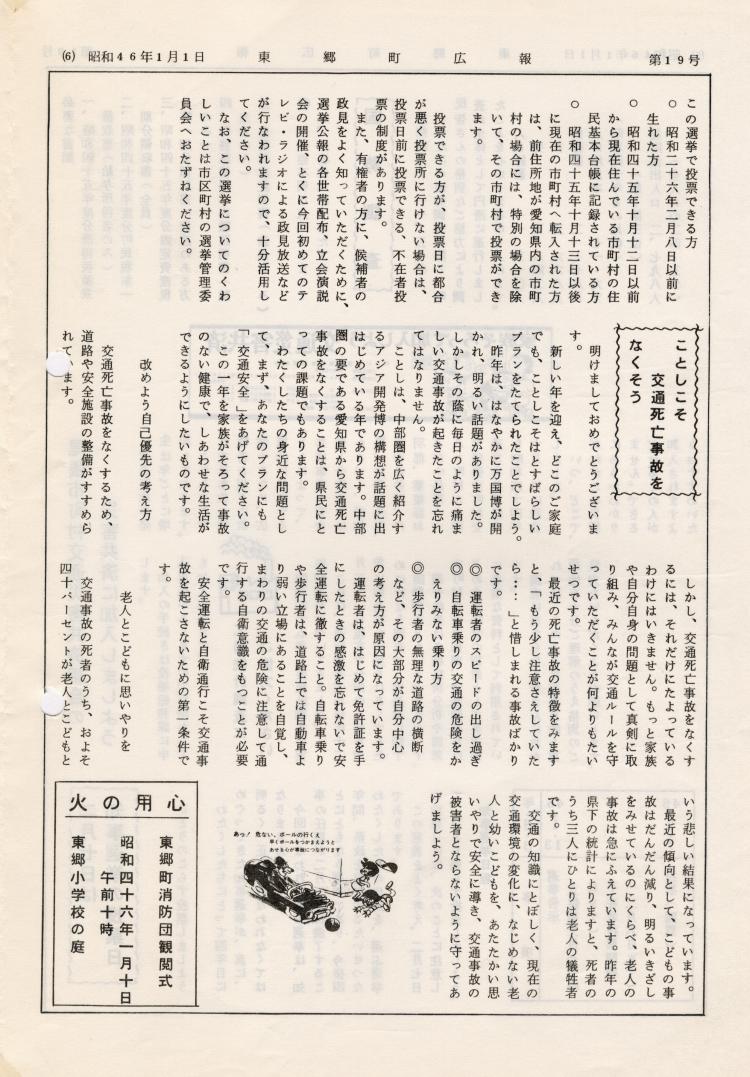 (6) 昭和46年1月1日
東郷町広報
第19号
この選挙で投票できる方
○ 昭和二十六年二月八日以前に
生れた方
○ 昭和四十五年十月十二日以前
から現在住んでいる市町村の住
民基本台帳に記録されている方
○ 昭和四十五年十月十三日以後
に現在の市町村へ転入された方
は、前住所地が愛知県内の市町
村の場合には、特別の場合を除
いて、その市町村で投票ができ
ます。
投票できる方が、投票日に都合
が悪く投票所に行けない場合は、
投票日前に投票できる、不在者投
票の制度があります。
また、有権者の方に、候補者の
政見をよく知っていただくために、
選挙公報の各世帯配布、立会演説
会の開催、とくに今回初めてのテ
レビ・ラジオによる政見放送など
が行なわれますので、十分活用し
てください。
なお、この選挙についてのくわ
しいことは市区町村の選挙管理委
員会へおたずねください。
ことしこそ
交通死亡事故を
なくそう
明けましておめでとうございま
す。
新しい年を迎え、どこのご家庭
でも、ことしこそはとすばらしい
プランをたてられたことでしょう。
昨年は、はなやかに万国博が開
かれ、明るい話題がありました。
しかしその蔭に毎日のように痛ま
しい交通事故が起きたことを忘れ
てはなりません。
ことしは、中部圏を広く紹介す
るアジア開発博の構想が話題に出
はじめている年であります。中部
圏の要である愛知県から交通死亡
事故をなくすることは、県民にと
っての課題でもあります。
わたくしたちの身近な問題とし
て、まず、あなたのプランにも
「交通安全」をあげてください。
この一年を家族がそろって事故
のない健康で、しあわせな生活が
できるようにしたいものです。
改めよう自己優先の考え方
交通死亡事故をなくするため、
道路や安全施設の整備がすすめら
れています。
しかし、交通死亡事故をなくす
るには、それだけにたよっている
わけにはいきません。もっと家族
や自分自身の問題として真剣に取
り組み、みんなが交通ルールを守
っていただくことが何よりもたい
せつです。
最近の死亡事故の特徴をみます
と、「もう少し注意さえしていた
ら…」と惜しまれる事故ばかり
です。
◎ 運転者のスピードの出し過ぎ
◎ 自転車乗りの交通の危険をか
えりみない乗り方
◎ 歩行者の無理な道路の横断
など、その大部分が自分中心
の考え方が原因になっています。
運転者は、はじめて免許証を手
にしたときの感激を忘れないで安
全運転に徹すること。自転車乗り
や歩行者は、道路上では自動車よ
り弱い立場にあることを自覚し、
まわりの交通の危険に注意して通
行する自衛意識をもつことが必要
です。
安全運転と自衛通行こそ交通事
故を起こさないための第一条件で
す。
老人とこどもに思いやりを
交通事故の死者のうち、およそ
四十パーセントが老人とこどもと
いう悲しい結果になっています。
最近の傾向として、こどもの事
故はだんだん減り、明るいきざし
をみせているのにくらべ、老人の
事故は急にふえています。昨年の
県下の統計によりますと、死者の
うち三人にひとりは老人の犠牲者
です。
交通の知識にとぼしく、現在の
交通環境の変化に、なじめない老
人と幼いこどもを、あたたかい思
いやりで安全に導き、交通事故の
被害者とならないように守ってあ
げましょう。
あっ！ 危ない、ボールの行くえ
早くボールをつかまえようと
あせる心が事故につながります
火の用心
東郷町消防団観閲式
昭和四十六年一月十日
午前十時
東郷小学校の庭